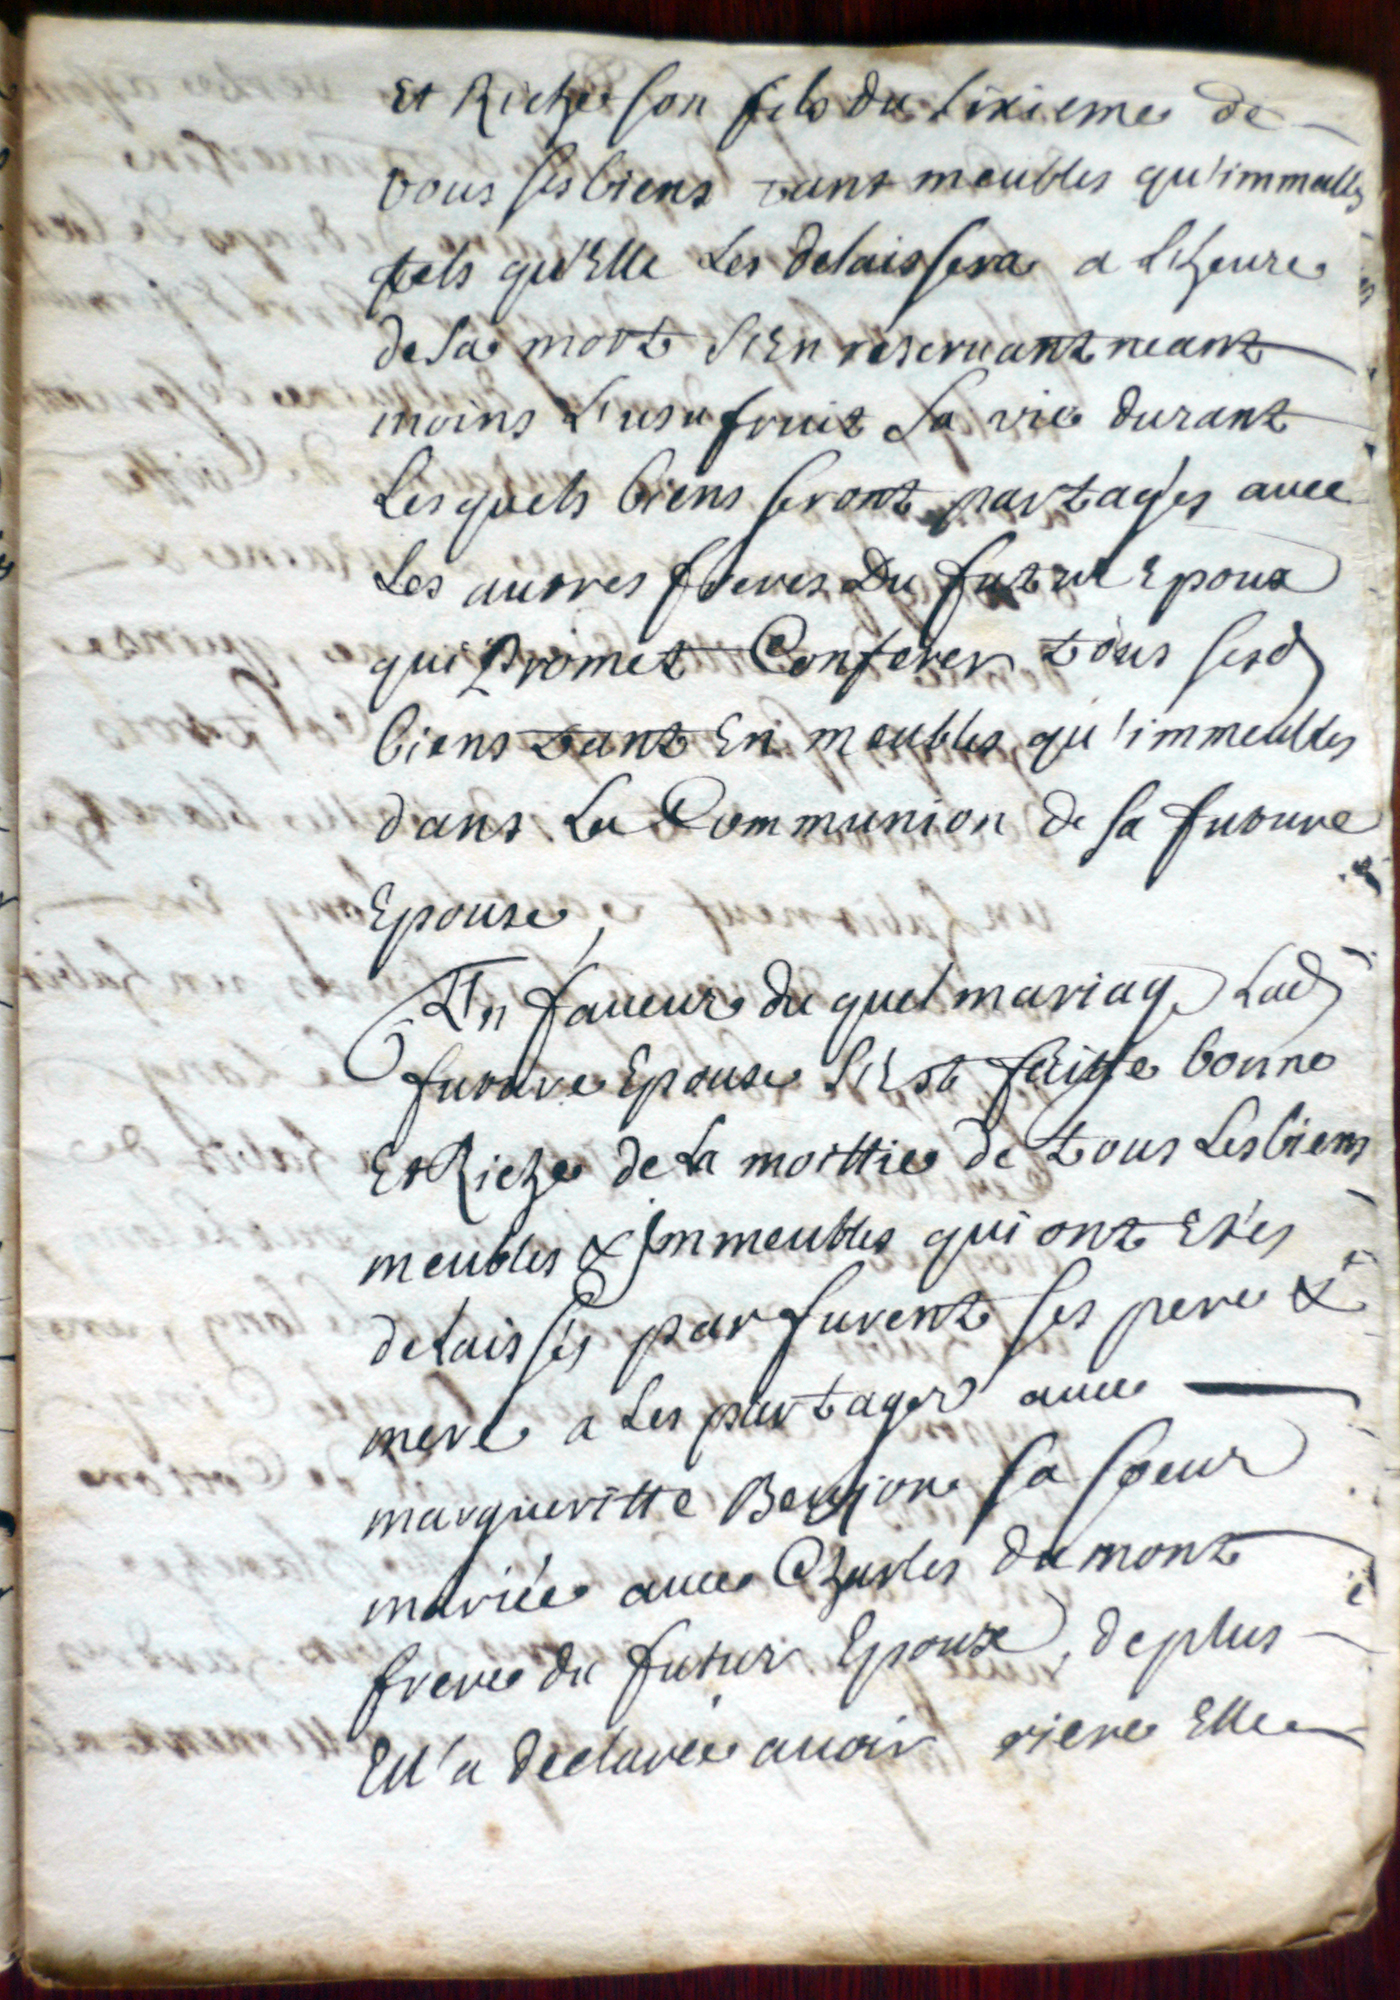 Et Riche son fils du sixieme de
tous ses biens tant meubles qu'immeubles
tels qu'Elle les delaissera a l'heure
de sa mort s'En reservant neant
moins l'usufruit sa vie durant
Lesquels biens seront partagés avec
Les autres freres Du futur Epoux
qui Promet Conferer tous sesd
biens tant En meubles qu'immeubles
dans La Communion de sa future
Epouse,
En faveur du quel mariage Lad
future Epouse s'Est faitte bonne
Et Riche de La moittie de tous Les biens
meubles & Immeubles qui ont Etés
delaissés par furent ses pere &
mere a Les partager avec
margueritte sa soeur
mariée avec Charles dumont
frere du futur Epoux, de plus
Ell'a declarée avoir riere Elle